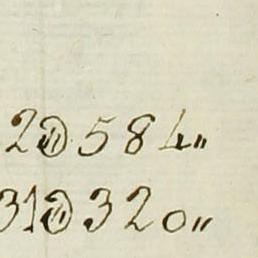 2@584"
31@320"